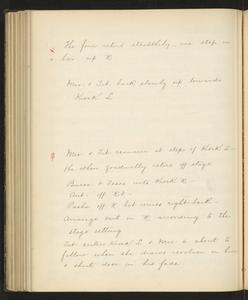 The four retire stealthily, one step in
a bar up R
Mrs. & Tat. back slowly up towards
Kiosk L
Mrs. & Tat. remain at steps of Kiosk L.
the others gradually retire off stage
into Kiosk R
Ant. off R.
Pasha off R but enters right back.
Arrange exit on R according to the
stage setting
Tat. enters Kiosk L & Mrs. is about to
follow when she draws revolver on him
& shuts door in his face.